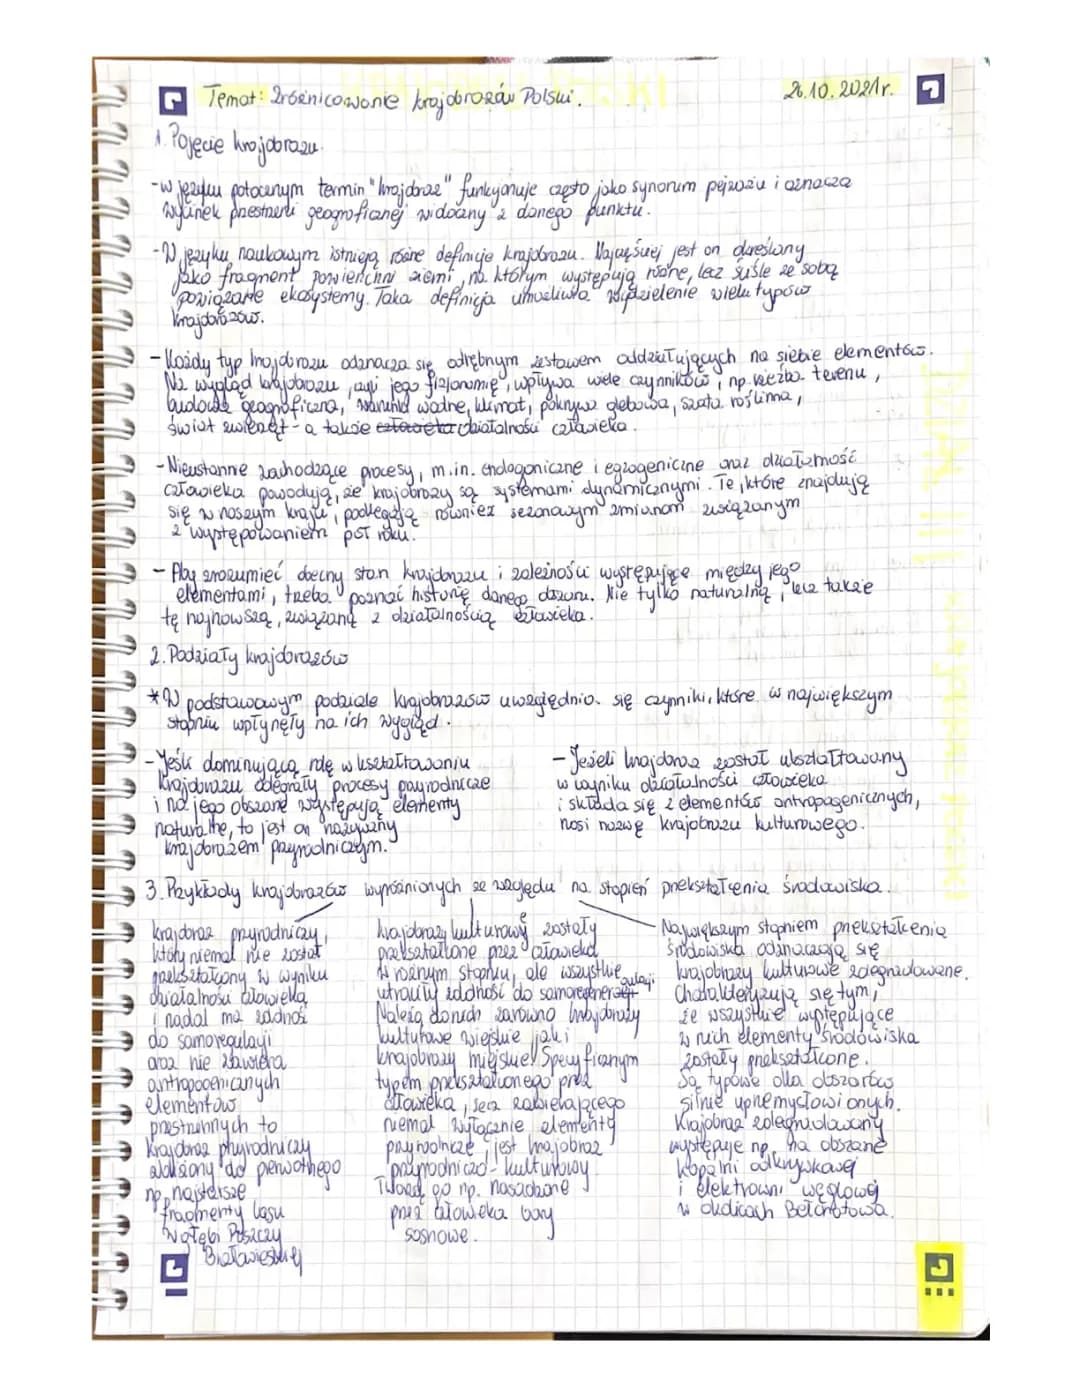 Temat: Zróżnicowanie krajobrazów Polski.
26.10.2021r.
1. Pojęcie krajobrazu.
-w języku potocznym termin "krajobraz" funkcjonuje często jako synonim pejzażu i oznacza
wycinek przestrzeni geograficznej widoczny z danego punktu.
-W języku naukowym istnieją różne definicje krajobrazu. Najczęściej jest on określany
jako fragment powierzchni ziemi, na którym występują różne, lecz ściśle ze sobą
powiązane ekosystemy. Taka definicja umożliwia wydzielenie wielu typów
krajobrazów.
- Każdy typ krajobrazu odznacza się odrębnym zestawem oddziałujących na siebie elementów.
Na wygląd krajobrazu, czyli jego fizjonomię, wpływa wiele czynników, np. rzeźba terenu,
budowa geograficzna, warunki wodne, klimat, pokrywa glebowa, szata roślinna,
świat zwierząt - a także działalność człowieka.
-Nieustannie zachodzące procesy, m.in. endogeniczne i egzogeniczne oraz działalność
człowieka powodują, że krajobrazy są systemami dynamicznymi. Te, które znajdują
się w naszym kraju, podlegają również sezonowym zmianom związanym
z występowaniem pór roku.
- Aby zrozumieć obecny stan krajobrazu i zależności występujące między jego
elementami, trzeba poznać historię danego obszaru. Nie tylko naturalną, lecz także
tę najnowszą, związaną z działalnością człowieka.
2. Podziały krajobrazów
*W podstawowym podziale krajobrazów uwzględnia się czynniki, które w największym
stopniu wpłynęły na ich wygląd.
-Jeśli dominującą rolę w kształtowaniu
krajobrazu odegrały procesy przyrodnicze
i na jego obszarze występują elementy
naturalne, to jest on nazywany
krajobrazem przyrodniczym.
- Jeżeli krajobraz został ukształtowany
w wyniku działalności człowieka
i składa się z elementów antropogenicznych,
nosi nazwę krajobrazu kulturowego.
3. Przykłady krajobrazów wyróżnionych ze względu na stopień przekształcenia środowiska.
krajobraz przyrodniczy,
który niemal nie został
przekształcony w wyniku
działalności człowieka
i nadal ma zdolność
do samoregulacji
oraz nie zawiera
antropogenicznych
elementów
przestrzennych to
krajobraz przyrodniczy
zbliżony do pierwotnego
np. najstarsze
fragmenty lasu
w głębi Puszczy
Białowieskiej
krajobrazy kulturowe zostały
przekształcone przez człowieka
w różnym stopniu, ale wszystkie
utraciły zdolność do samoregulacji
Należą do nich zarówno krajobrazy
kulturowe wiejskie jak i
krajobrazy miejskie. Specyficznym
typem przekształconego przez
człowieka, lecz zawierającego
niemal wyłącznie elementy
przyrodnicze, jest krajobraz
przyrodniczo-kulturowy
Tworzą go np. nasadzone
przez człowieka bory
sosnowe.
Największym stopniem przekształcenia
środowiska odznaczają się
krajobrazy kulturowe zdegradowane.
Charakteryzują się tym,
że wszystkie występujące
w nich elementy środowiska
zostały przekształcone.
Są typowe dla obszarów
silnie uprzemysłowionych.
Krajobraz zdegradowany
występuje np. na obszarze
kopalni odkrywkowej
i elektrowni węglowej
w okolicach Bełchatowa.